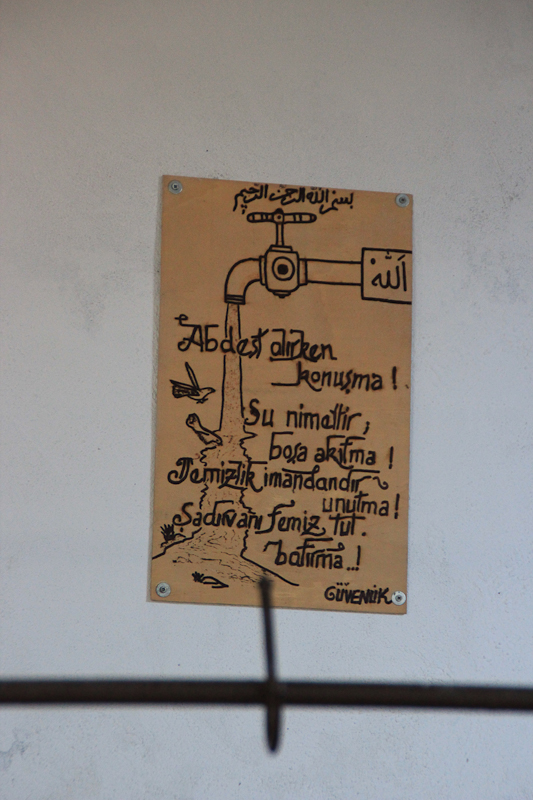 بسم الله الرحمن الرحيم
الله
Abdest alırken
konuşma !
Su nimettir,
boşa akıtma !
Temizlik imandandır
unutma !
Şadırvanı temiz tut.
batırma..!
GÜVENLİK